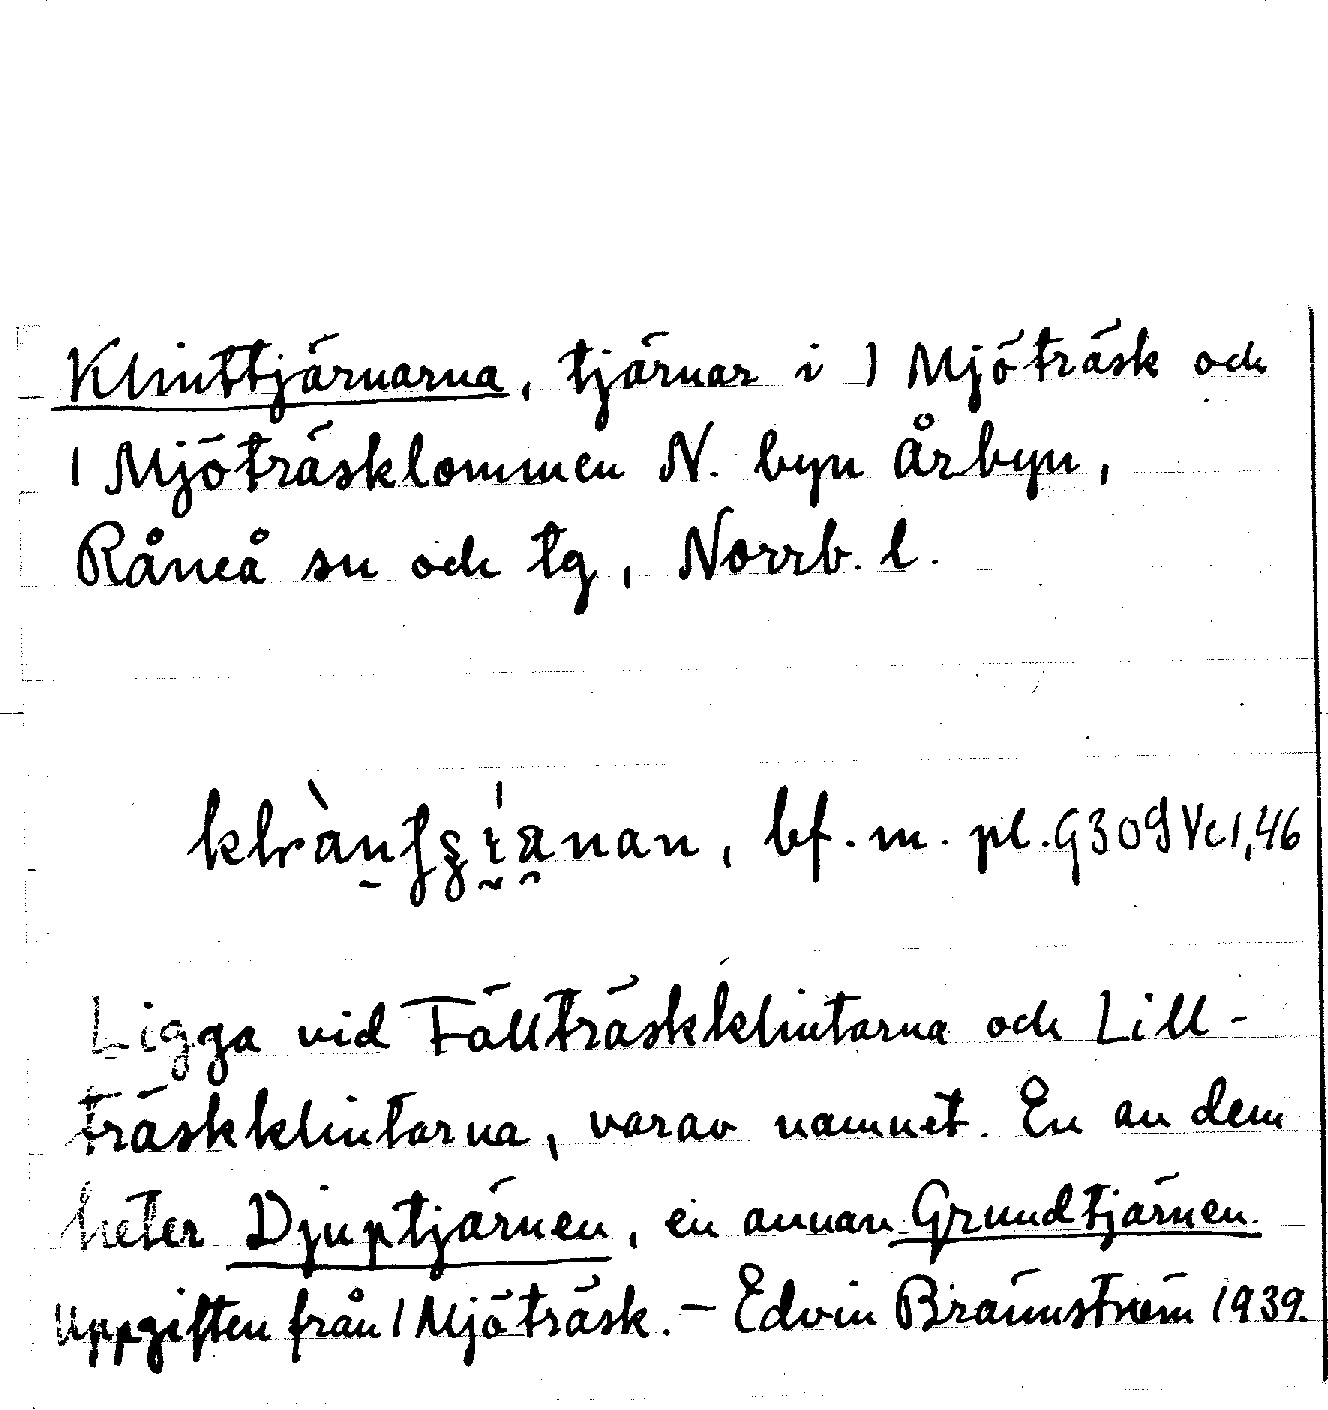 Klinttjärnarna, tjärnar i 1 Mjöträsk och
1 Mjöträsklommen N. byn Årbyn,
Råneå sn och tg, Norrb. l.
bf. m. pl. G309 Vc1,46
Ligga vid Fällträskklintarna och Lill-
träskklintarna, varav namnet. En av dem
heter Djuptjärnen, en annan Grundtjärnen.
Uppgiften från 1 Mjöträsk. – Edvin Brännström 1939.